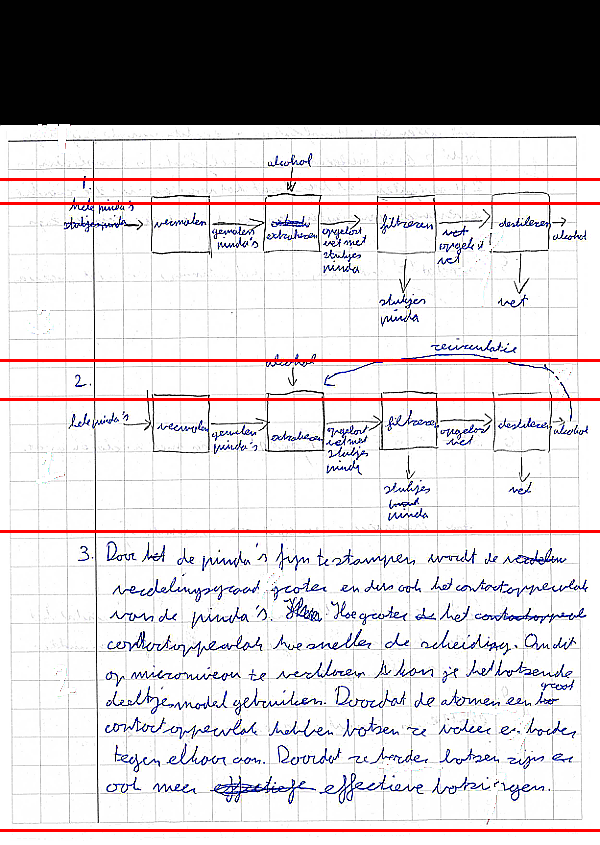 alcohol
1.
hele pinda's
vermalen
gemalen pinda's
extraheren
opgelost vet met stukjes pinda
filtreren
opgelost vet
destilleren
alcohol
stukjes pinda
vet
recirculatie
alcohol
2.
hele pinda's
vermalen
gemalen pinda's
extraheren
opgelost vet met stukjes pinda
filtreren
opgelost vet
destilleren
alcohol
stukjes pinda
vet
3. Door het de pinda's fijn te stampen wordt de verdelen
verdelingsgraad groter en dus ook het contactoppervlak
van de pinda's. Hoe groter de het contactoppervl
contactoppervlak hoe sneller de scheiding. Om dit
op microniveau te verklaren k kan je het botsende
deeltjesmodel gebruiken. Doordat de atomen een groot
contactoppervlak hebben botsen ze vaker en harder
tegen elkaar aan. Doordat ze harder botsen zijn er
ook meer effectiefe effectieve botsingen.